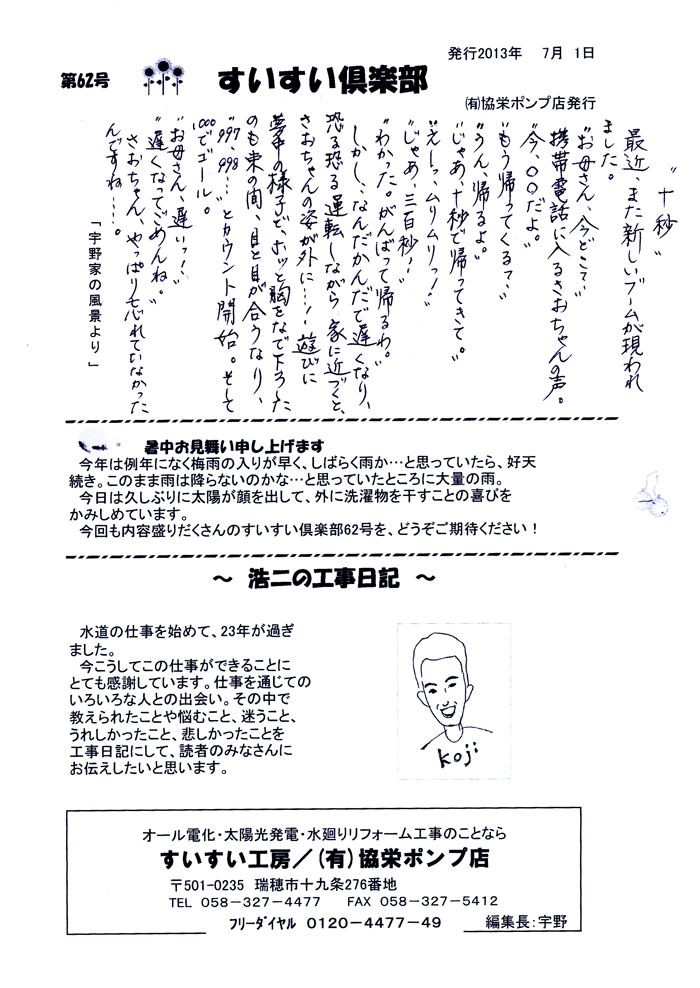 発行2013年　7月　1日
第62号
すいすい倶楽部
㈲協栄ポンプ店発行
"十秒"
最近、また新しいブームが現われ
ました。
"お母さん、今どこ?"
携帯電話に入るさおちゃんの声。
"今、〇〇だよ。"
"もう帰ってくる?"
"うん、帰るよ。"
"じゃあ、十秒で帰ってきて。"
"えーっ、ムリムリっ!"
"じゃあ、三百秒!"
"わかった。がんばって帰るわ。"
しかし、なんだかんだで遅くなり、
恐る恐る運転しながら家に近づくと、
さおちゃんの姿が外に…!遊びに
夢中の様子で、ホッと胸をなで下ろした
のも束の間、目と目が合うなり、
"997、998…"とカウント開始。そして
1,000でゴール。
"お母さん、遅いっ!"
"遅くなってごめんね。"
さおちゃん、やっぱり忘れていなかった
んですね…。
「宇野家の風景より」
暑中お見舞い申し上げます
今年は例年になく梅雨の入りが早く、しばらく雨か…と思っていたら、好天
続き。このまま雨は降らないのかな…と思っていたところに大量の雨。
今日は久しぶりに太陽が顔を出して、外に洗濯物を干すことの喜びを
かみしめています。
今回も内容盛りだくさんのすいすい倶楽部62号を、どうぞご期待ください！
～　浩二の工事日記　～
水道の仕事を始めて、23年が過ぎ
ました。
今こうしてこの仕事ができることに
とても感謝しています。仕事を通じての
いろいろな人との出会い。その中で
教えられたことや悩むこと、迷うこと、
うれしかったこと、悲しかったことを
工事日記にして、読者のみなさんに
お伝えしたいと思います。
koji
オール電化・太陽光発電・水廻りリフォーム工事のことなら
すいすい工房／(有)協栄ポンプ店
〒501-0235　瑞穂市十九条276番地
TEL 058-327-4477　FAX 058-327-5412
ﾌﾘｰﾀﾞｲﾔﾙ 0120-4477-49
編集長：宇野